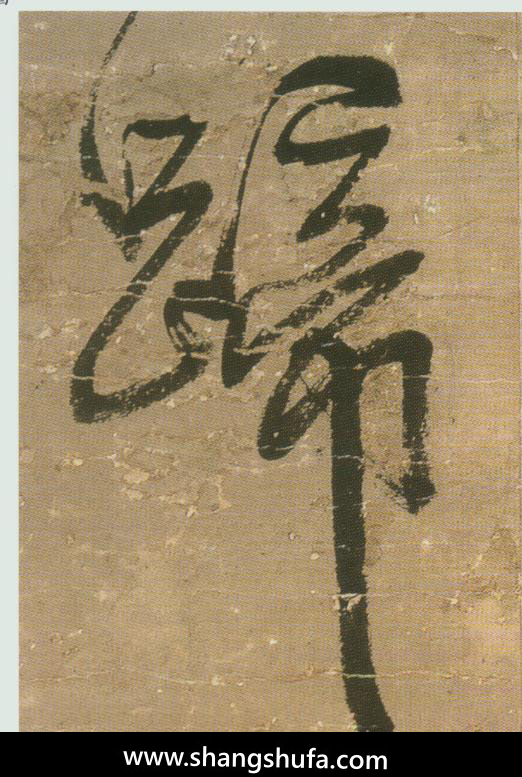 歸
www.shangshufa.com